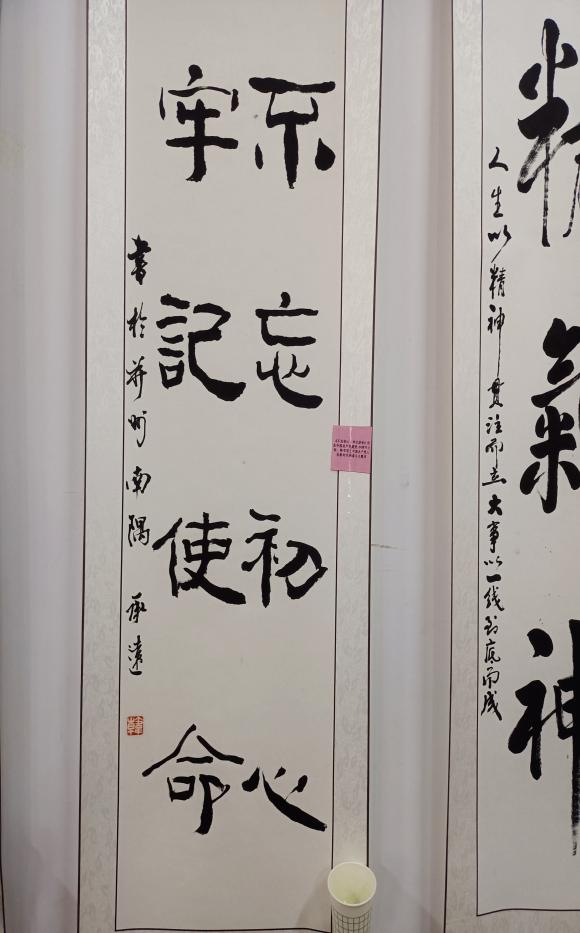 不忘初心
牢記使命
書於并州南隅 承遠
精氣神
人生以精神贯注而立大事以一线到底而成